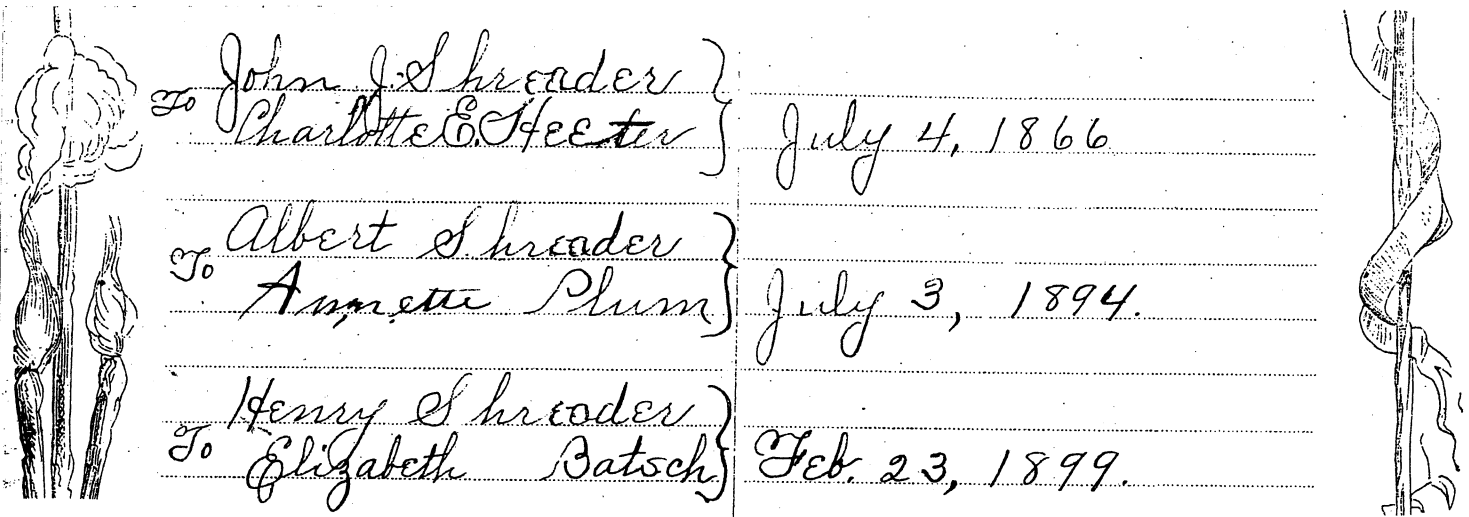 John J. Shreader
To Charlotte E. Heeter } July 4, 1866
Albert Shreader
To Annette Plum } July 3, 1894.
Henry Shreader
To Elizabeth Batsch } Feb. 23, 1899.